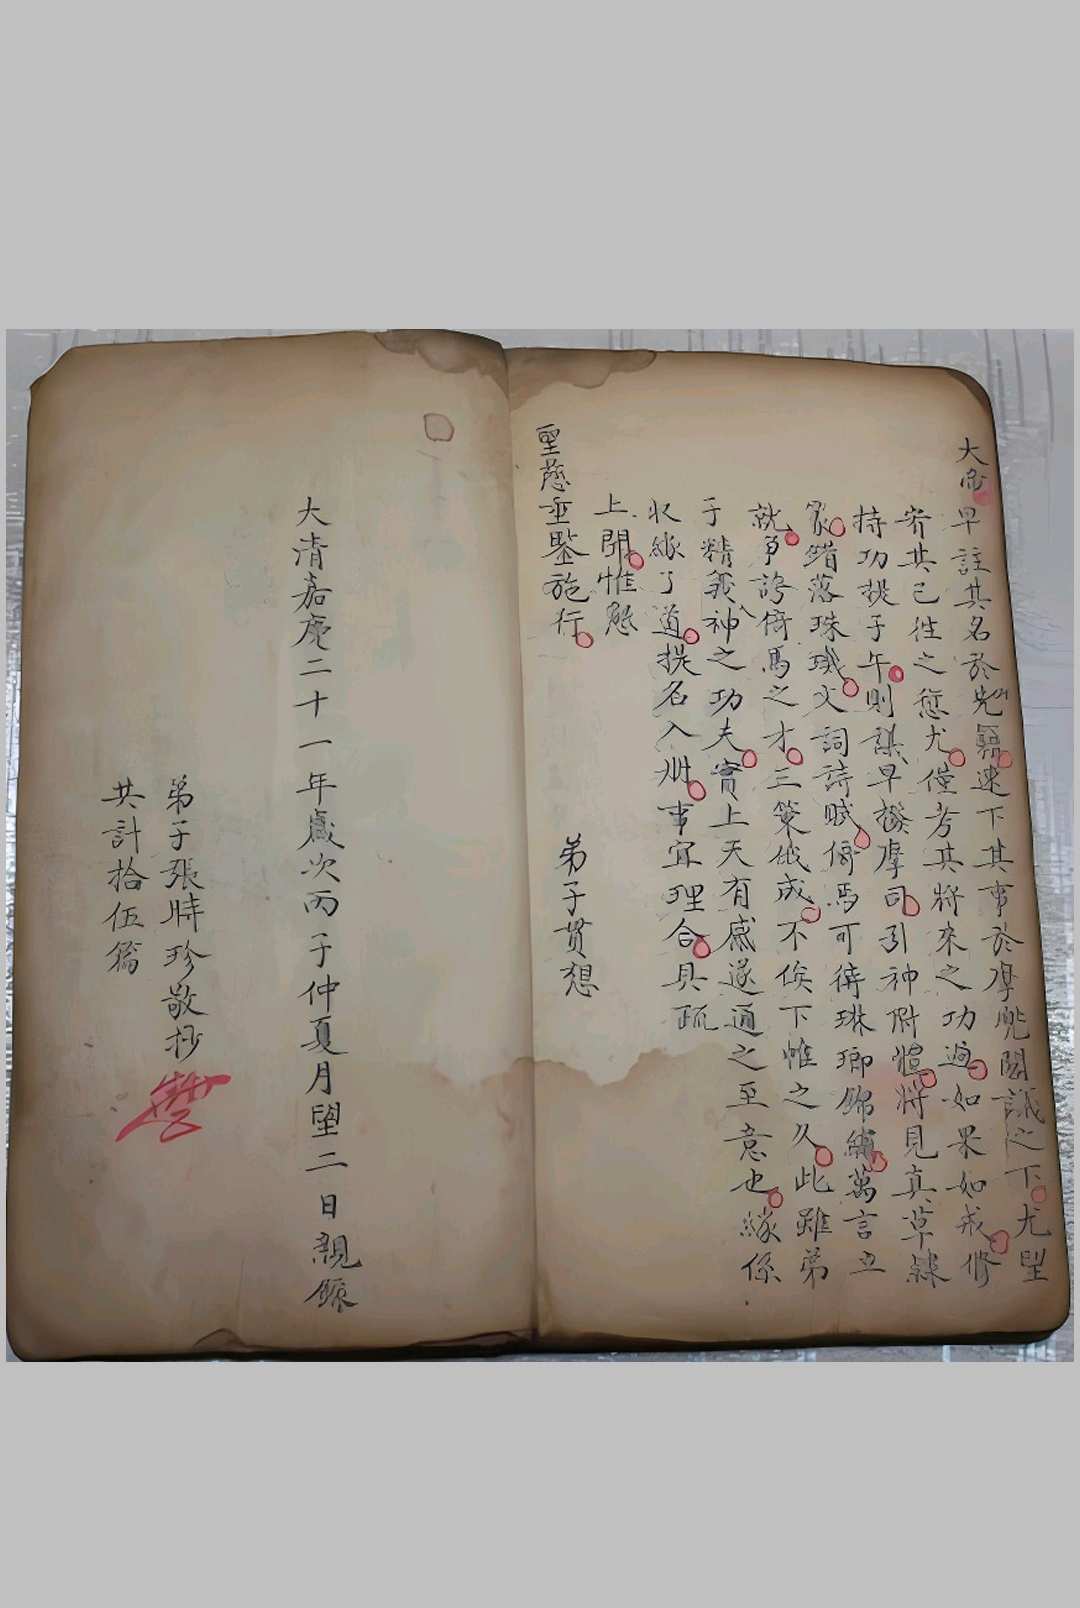 大帝早註其名於先籍速下其事於摩兜閣議之下尤望
宥其已往之愆尤僅考其將來之功過如果如戒修
持功挨子午則謀早撥摩司引神附體將見真草隸
篆錯落珠璣文詞詩賦倚馬可待琳瑯錦繡萬言立
就爭誇倚馬之才三策俄成不俟下帷之久此雖弟
子精義入神之功夫實上天有感遂通之至意也緣係
收緣了道提名入冊事宜理合具疏
上聞惟懇
聖慈垂鑒施行
弟子貫想
大清嘉慶二十一年歲次丙子仲夏月望二日親錄
弟子張時珍敬抄
共計拾伍篇